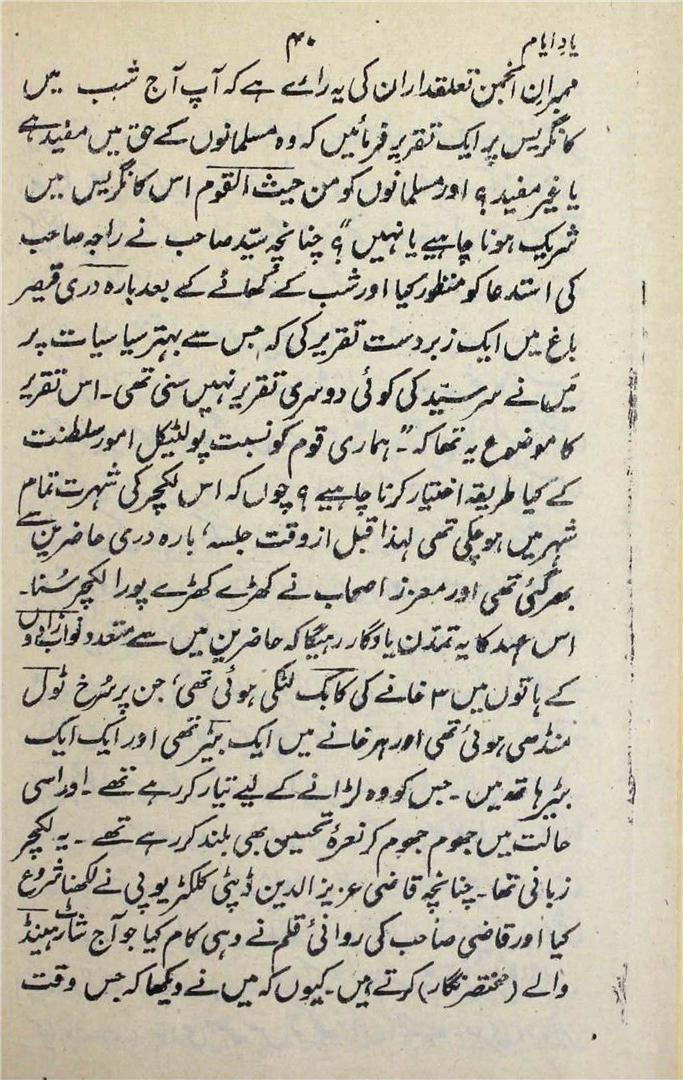 یادِ ایام
۴۰
ممبرانِ انجمن تعلقداران کی یہ رائے ہے کہ آپ آج شب میں
کانگریس پر ایک تقریر فرمائیں کہ وہ مسلمانوں کے حق میں مفید ہے
یا غیر مفید؟ اور مسلمانوں کو من حیث القوم اس کانگریس میں
شریک ہونا چاہیے یا نہیں"؟ چنانچہ سیّد صاحب نے راجہ صاحب
کی استدعا کو منظور کیا اور شب کے کھانے کے بعد بارہ دری قیصر
باغ میں ایک زبردست تقریر کی کہ جس سے بہتر سیاسیات پر
میں نے سر سیّد کی کوئی دوسری تقریر نہیں سنی تھی۔ اس تقریر
کا موضوع یہ تھا کہ۔" ہماری قوم کو نسبت پولٹیکل امور سلطنت
کے کیا طریقہ اختیار کرنا چاہیے؟ چوں کہ اس لکچر کی شہرت تمام
شہر میں ہو چکی تھی لہٰذا قبل از وقت جلسہ، بارہ دری حاضرین سے
بھر گئی تھی اور معزز اصحاب نے کھڑے کھڑے پورا لکچر سُنا۔
اس عہد کا یہ تمدّن یادگار رہیگا کہ حاضرین میں سے متعدد نواب زادوں
کے ہاتوں میں ۳ خانے کی کابک لٹکی ہوئی تھی، جن پر سُرخ ٹول
منڈھی ہوئی تھی اور ہر خانے میں ایک بٹیر تھی اور ایک ایک
بٹیر ہاتھ میں۔ جس کو وہ لڑانے کے لیے تیار کر رہے تھے۔ اور اسی
حالت میں جھوم جھوم کر نعرۂ تحسین بھی بلند کر رہے تھے۔ یہ لکچر
زبانی تھا۔ چنانچہ قاضی عزیز الدین ڈپٹی کلکٹر یوپی نے لکھنا شروع
کیا اور قاضی صاحب کی روانئ قلم نے وہی کام کیا جو آج شارٹ ہینڈ
والے (مختصر نگار) کرتے ہیں۔ کیوں کہ میں نے دیکھا کہ جس وقت